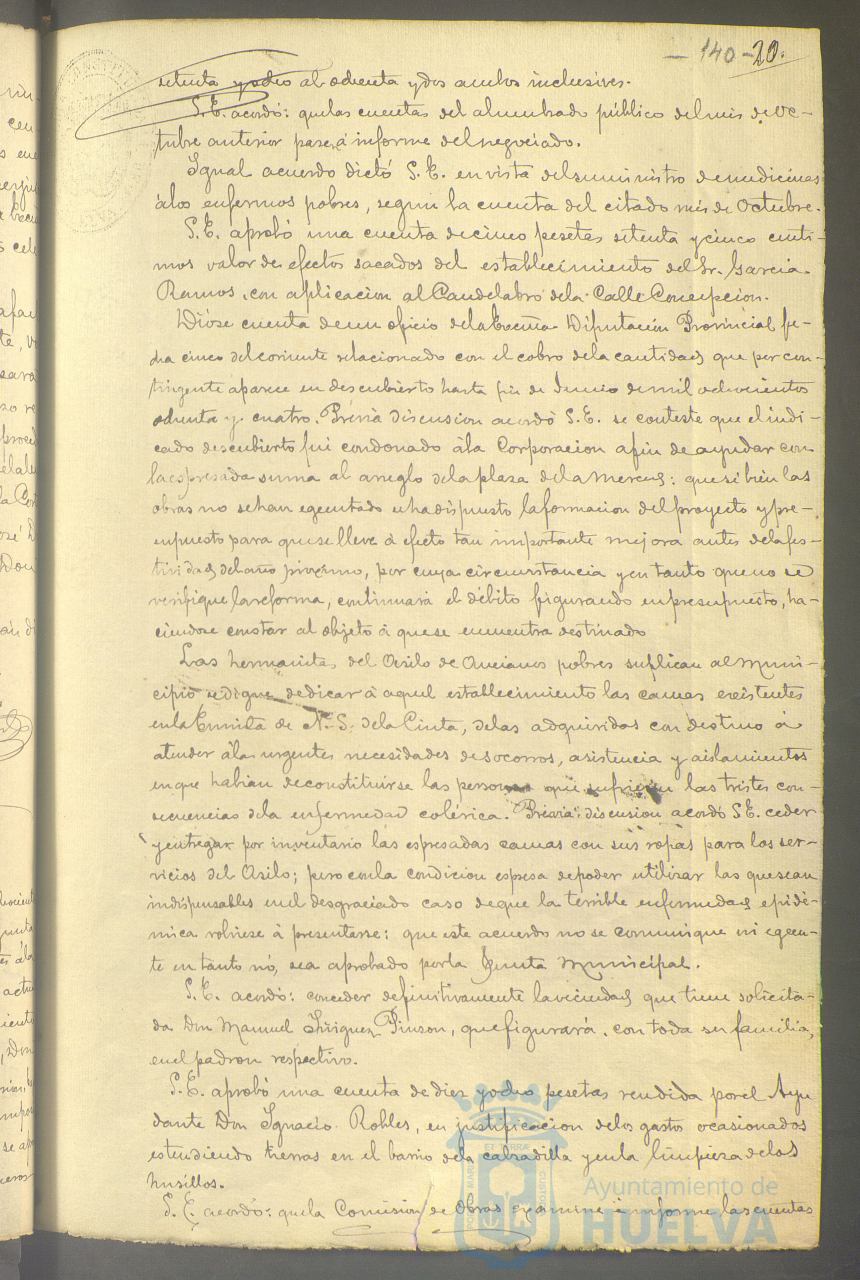 - 140 - 20.
setenta y ocho al ochenta y dos ambos inclusives.
S.E. acordó: que las cuentas del alumbrado público del mes de Oc-
tubre anterior pase á informe del negociado.
Igual acuerdo dictó S.E. en vista del suministro de medicinas
á los enfermos pobres, segun la cuenta del citado mes de Octubre.
S.E. aprobó una cuenta de cinco pesetas setenta y cinco centi-
mos valor de efectos sacados del establecimiento del Sr. Garcia
Ramos, con aplicacion al Candelabro de la Calle Concepcion.
Dióse cuenta de un oficio de la Excma Diputación Provincial fe-
cha cinco del corriente relacionado con el cobro de la cantidad que por con-
tingente aparece en descubierto hasta fin de Junio de mil ochocientos
ochenta y cuatro. Prévia discusion acordó S.E. se conteste que el indi-
cado descubierto fué condonado á la Corporacion a fin de ayudar con
la espresada suma al arreglo de la plaza de la Merced: que si bien las
obras no se han egecutado se ha dispuesto la formacion del proyecto y pre-
supuesto para que se lleve á efecto tan importante mejora antes de la fes-
tividad del año proximo, por cuya circunstancia y en tanto que no se
verifique la reforma, continuará el débito figurando en presupuesto, ha-
ciendose constar al objeto á que se encuentra destinado
Las hermanitas del Asilo de Ancianos pobres suplican al Muni-
cipio se digne dedicar á aquel establecimiento las camas existentes
en la Ermita de N. S. de la Cinta, de las adquiridas con destino á
atender á las urgentes necesidades de socorros, asistencia y aislamientos
en que habian de constituirse las personas que sufriesen las tristes con-
secuencias de la enfermedad colérica. Prévia discusion acordó S.E. ceder
y entregar por inventario las espresadas camas con sus ropas para los ser-
vicios del Asilo; pero con la condicion espresa de poder utilizar las que sean
indispensables en el desgraciado caso de que la terrible enfermedad epidé-
mica volviese á presentarse: que este acuerdo no se comunique ni egecu-
te en tanto no, sea aprobado por la Junta Municipal.
S.E. acordó: conceder definitivamente la vecindad que tiene solicita-
da Don Manuel Iñiguez Pinson, que figurará, con toda su familia,
en el padron respectivo.
S.E. aprobó una cuenta de diez y ocho pesetas rendida por el Ayu
dante Don Ignacio Robles, en justificacion de los gastos ocasionados
estendiendo tierras en el barrio de la calzadilla y en la limpieza de los
husillos.
S.E. acordó: que la Comision de Obras examine é informe las cuentas
Ayuntamiento de
HUELVA